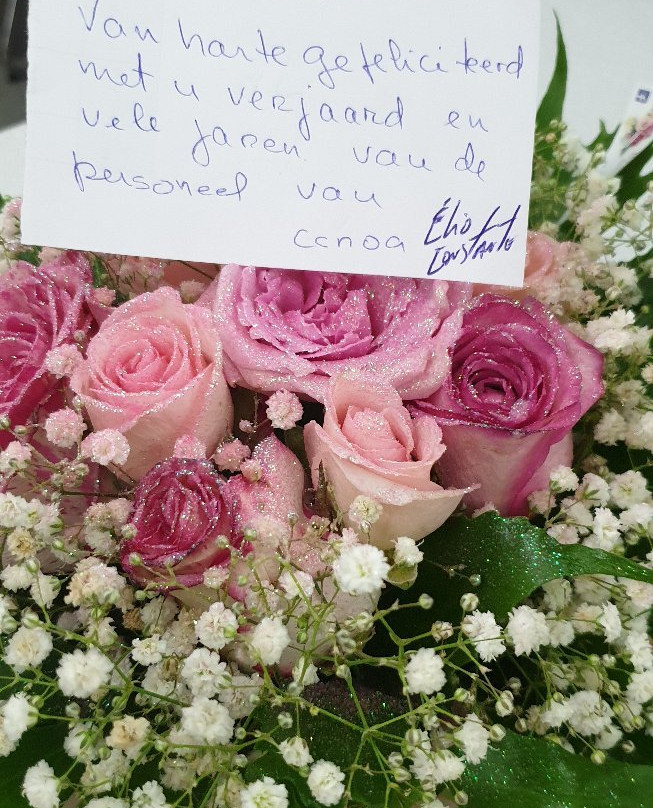 Van harte gefeliciteerd
met u verjaard en
vele jaren van de
personeel van
canoa Élio
Constante